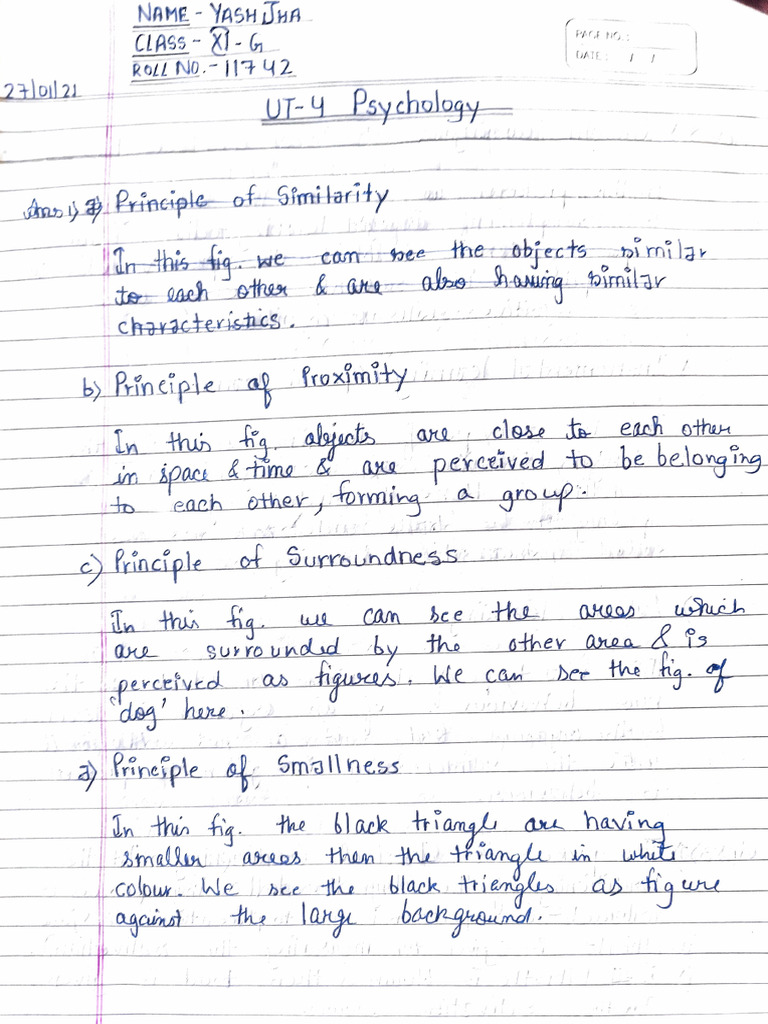 NAME - YASH JHA
CLASS - XI - G
ROLL NO. - 11742
PAGE NO.:
DATE: / /
27/01/21
UT-4 Psychology
Ans 1) a) Principle of Similarity
In this fig. we can see the objects similar
to each other & are also having similar
characteristics.
b) Principle of Proximity
In this fig. objects are close to each other
in space & time & are perceived to be belonging
to each other, forming a group.
c) Principle of Surroundness
In this fig. we can see the areas which
are surrounded by the other area & is
perceived as figures. We can see the fig. of
'dog' here.
d) Principle of Smallness
In this fig. the black triangle are having
smaller areas then the triangle in white
colour. We see the black triengles as figure
against the large background.